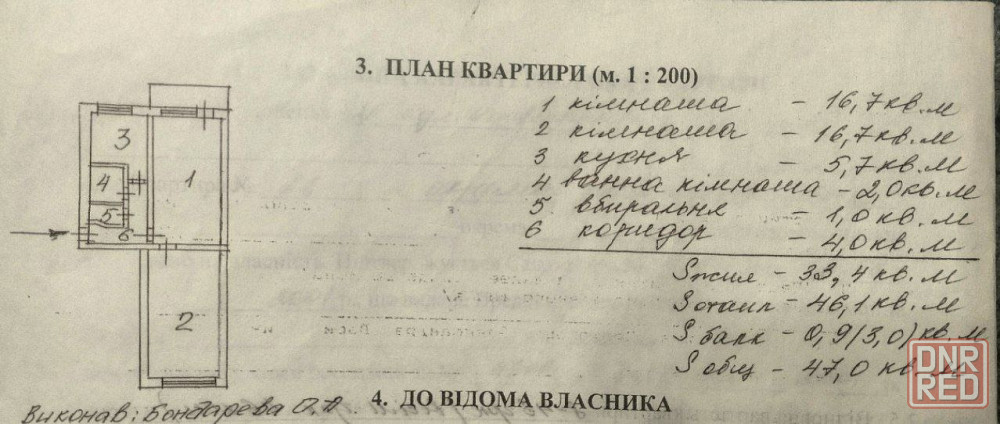 3. ПЛАН КВАРТИРИ (м. 1 : 200)
1 кімната - 16,7 кв.м
2 кімната - 16,7 кв.м
3 кухня - 5,7 кв.м
4 ванна кімната - 2,0 кв.м
5 вбиральня - 1,0 кв.м
6 коридор - 4,0 кв.м
Sжил - 33,4 кв.м
Sотапл - 46,1 кв.м
Sбалк - 0,9 (3,0) кв.м
Sобщ - 47,0 кв.м
3
4
1
5
6
2
DNR
RED
4. ДО ВІДОМА ВЛАСНИКА
Виконав: Бондарева